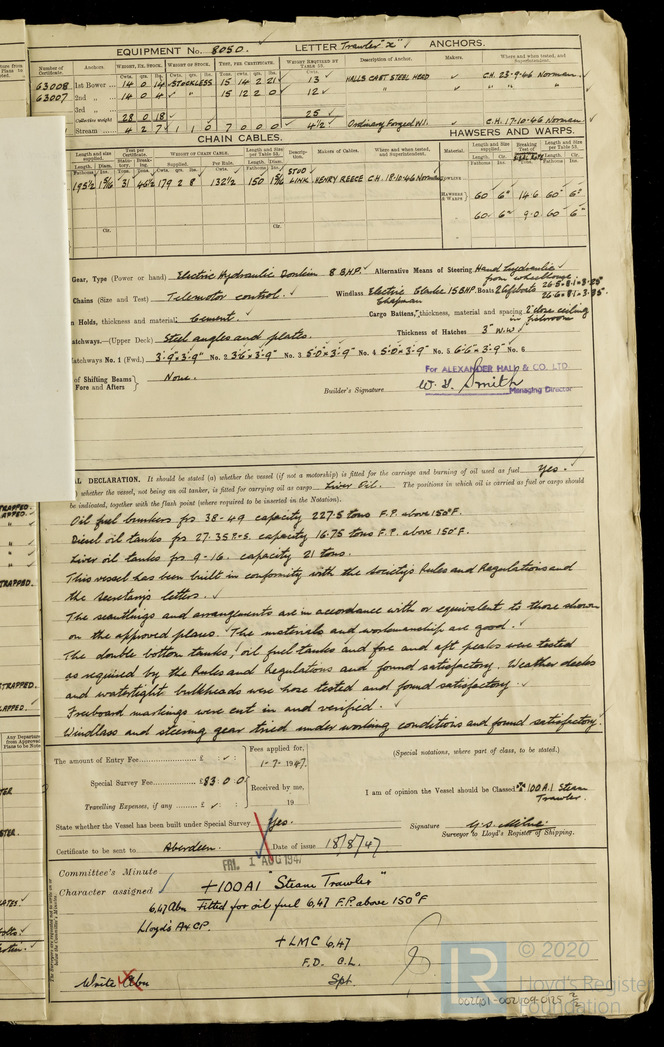 EQUIPMENT No. 8050. LETTER Trawler "x" ANCHORS.
Number of Certificate. Anchors. WEIGHT, EX. STOCK. WEIGHT OF STOCK. TEST, PER CERTIFICATE. WEIGHT REQUIRED BY TABLE 53. Description of Anchor. Makers. Where and when tested, and Superintendent.
Cwts. qrs. lb. Cwts. qrs. lb. Tons. cwt. qrs. lb. Cwts.
63008 1st Bower 14 0 14 STOCKLESS 15 14 2 21 13 HALLS CAST STEEL HEAD C.H. 25-9-46 Norman.
63007 2nd " 14 0 4 " 15 12 2 0 12 " " " " "
3rd "
Collective weight 28 0 18 25
Stream 4 2 7 1 1 0 7 0 0 0 4½ Ordinary Forged W.I. C.H. 17-10-46 Norman.
CHAIN CABLES. HAWSERS AND WARPS.
Length and size supplied. Test per Certificate. WEIGHT OF CHAIN CABLE. Length and Size per Table 53. Description. Makers of Cables. Where and when tested, and Superintendent. Material. Length and size supplied. Breaking Test of Length and size per Table 53.
Length. Diam. Statutory. Breaking. Supplied. Per Rule. Length. Diam. Length. Cir. Length. Cir.
Fathoms Ins. Tons. Cwts. qrs. lb. Cwts. Fathoms Ins. Fathoms Ins. Tons. Fathoms Ins.
195½ 1 5/16 31 46½ 179 2 8 132½ 150 1 5/16 STUD LINK HENRY REECE C.H. 18-10-46 Norman
HAWSERS & WARPS 60 6" 14·6 60 6"
60 6" 9·0 60 6"
Cir. Cir.
Gear, Type (Power or hand) Electric Hydraulic Donkin 8 BHP. Alternative Means of Steering Hand hydraulic from wheelhouse
Chains (Size and Test) Telemotor control. Windlass Electric Clarke Chapman 15 BHP. Boats 2 lifeboats 26·5×8·1×3·25" 26·6×8·1×3·35.
n Holds, thickness and material Cement. Cargo Battens, thickness, material and spacing 2" close ceiling in fishroom
atchways.—(Upper Deck) Steel angles and plates. Thickness of Hatches 3" W.W.
atchways No. 1 (Fwd.) 3'-9"×3'-9" No. 2 3'6×3'-9" No. 3 5'-0×3'-9" No. 4 5'-0×3'-9" No. 5 6'-6×3'-9" No. 6
of Shifting Beams Fore and Afters None.
For ALEXANDER HALL & CO. LTD.
Builder's Signature W. G. Smith Managing Director
AL DECLARATION. It should be stated (a) whether the vessel (if not a motorship) is fitted for the carriage and burning of oil used as fuel Yes.
) whether the vessel, not being an oil tanker, is fitted for carrying oil as cargo Liver Oil. The positions in which oil is carried as fuel or cargo should
be indicated, together with the flash point (where required to be inserted in the Notation).
Oil fuel bunkers frs 38-49 capacity 227·5 tons F.P. above 150°F.
Diesel oil tanks frs 27-35 P.&S. capacity 16·75 tons F.P. above 150°F.
Liver oil tanks frs 9-16. capacity 21 tons.
This vessel has been built in conformity with the Society's Rules and Regulations and
the secretary's letters.
The scantlings and arrangements are in accordance with or equivalent to those shown
on the approved plans. The materials and workmanship are good.
The double bottom tanks, oil fuel tanks and fore and aft peaks were tested
as required by the Rules and Regulations and found satisfactory. Weather decks
and watertight bulkheads were hose tested and found satisfactory.
Freeboard markings were cut in and verified.
Windlass and steering gear tried under working conditions and found satisfactory.
The amount of Entry Fee £ : : Fees applied for, 1-7-1947. (Special notations, where part of class, to be stated.)
Special Survey Fee £83 : 0 : 0 Received by me,
I am of opinion the Vessel should be Classed +100A1 Steam Trawler.
Travelling Expenses, if any £ : : 19
State whether the Vessel has been built under Special Survey Yes. Signature G. S. Milne
Surveyor to Lloyd's Register of Shipping.
Certificate to be sent to Aberdeen. Date of issue 18/8/47
FRI. 1 AUG 1947
Committee's Minute
Character assigned +100A1 "Steam Trawler"
6,47 Abn Fitted for oil fuel 6,47 F.P. above 150°F
Lloyd's A&CP.
+LMC 6,47
F.D. C.L.
Write Abn Spt.
© 2020
LR Lloyd's Register Foundation
002401-002409-0125 2/2